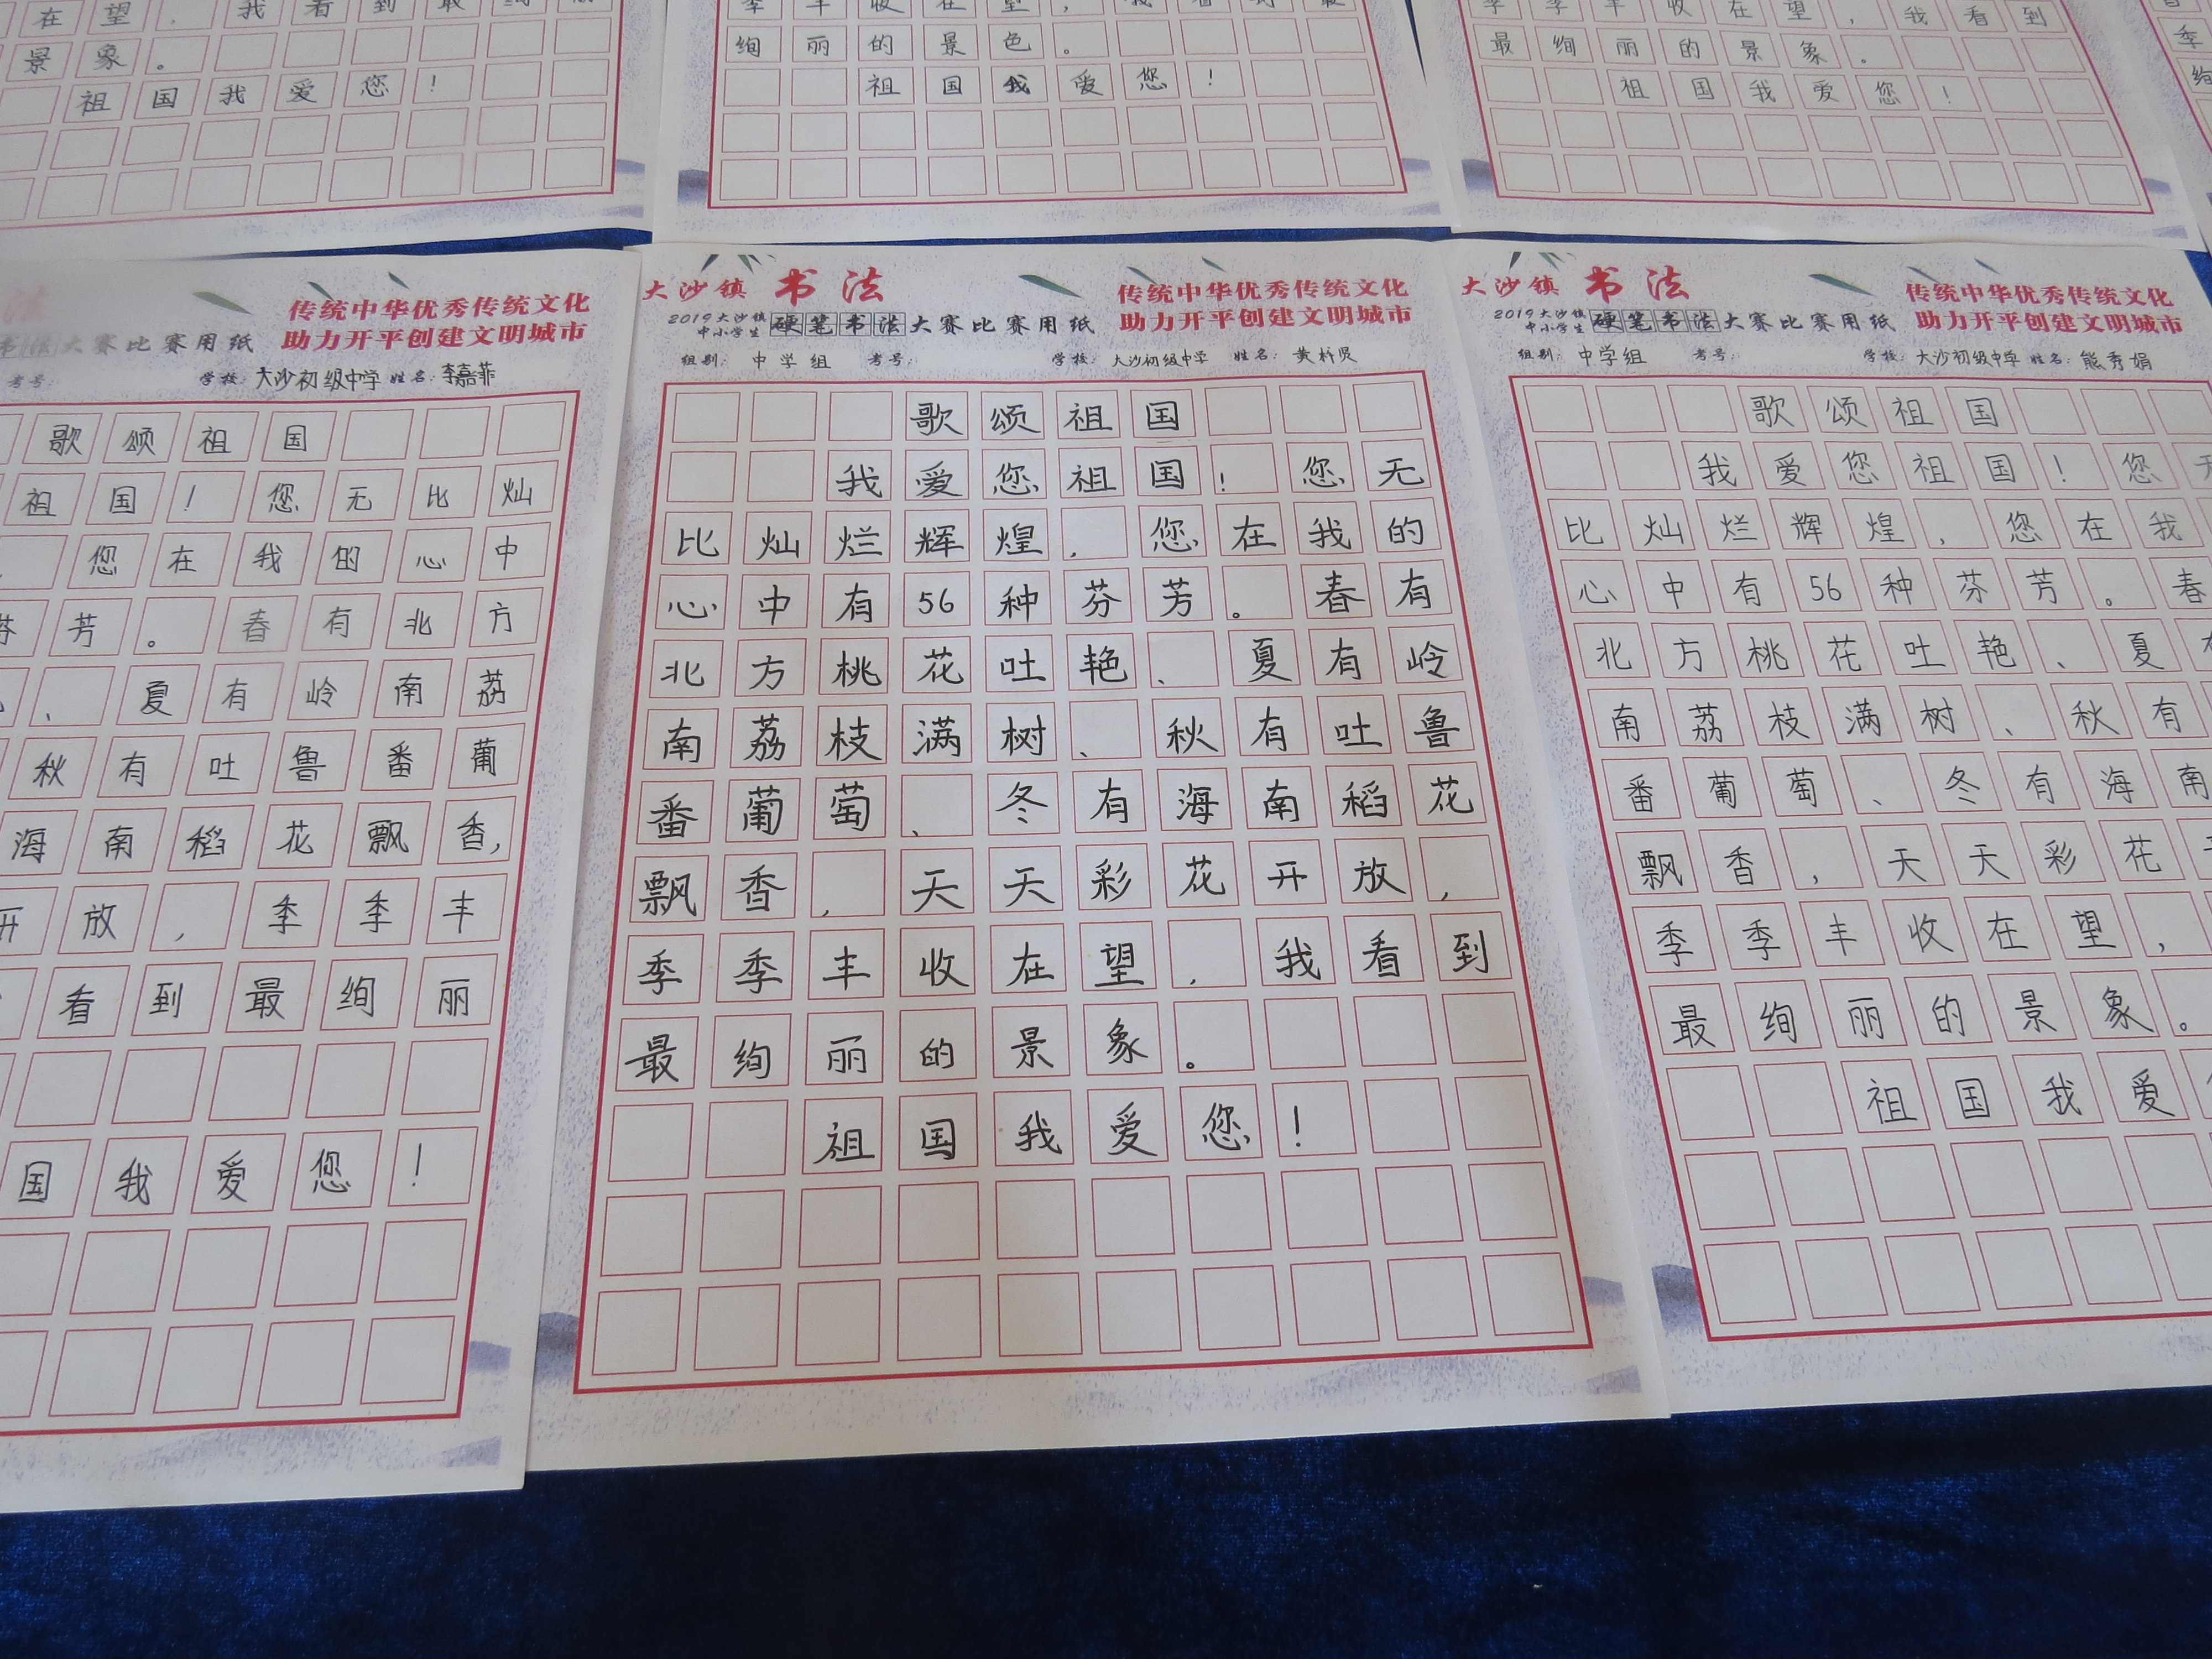 在望,我看到最
景象。
祖国我爱您!
季丰收在望,我看到最
绚丽的景色。
祖国我爱您!
季季丰收在望,我看到
最绚丽的景象。
祖国我爱您!
季
绚
法
传统中华优秀传统文化
助力开平创建文明城市
书法大赛比赛用纸
考号: 学校:大沙初级中学 姓名:李嘉菲
歌颂祖国
祖国!您无比灿
您在我的心中
芬芳。春有北方
、夏有岭南荔
秋有吐鲁番葡
海南稻花飘香,
开放,季季丰
看到最绚丽
国我爱您!
大沙镇 书法
传统中华优秀传统文化
助力开平创建文明城市
2019大沙镇中小学生硬笔书法大赛比赛用纸
组别:中学组 考号: 学校:大沙初级中学 姓名:黄 贤
歌颂祖国
我爱您祖国!您无
比灿烂辉煌,您在我的
心中有56种芬芳。春有
北方桃花吐艳、夏有岭
南荔枝满树、秋有吐鲁
番葡萄、冬有海南稻花
飘香,天天彩花开放,
季季丰收在望,我看到
最绚丽的景象。
祖国我爱您!
大沙镇 书法
传统中华优秀传统文化
助力开平创建文明城市
2019大沙镇中小学生硬笔书法大赛比赛用纸
组别:中学组 考号: 学校:大沙初级中学 姓名:熊秀娟
歌颂祖国
我爱您祖国!您无
比灿烂辉煌,您在我
心中有56种芬芳。春
北方桃花吐艳、夏有
南荔枝满树、秋有
番葡萄、冬有海南
飘香,天天彩花
季季丰收在望,
最绚丽的景象。
祖国我爱